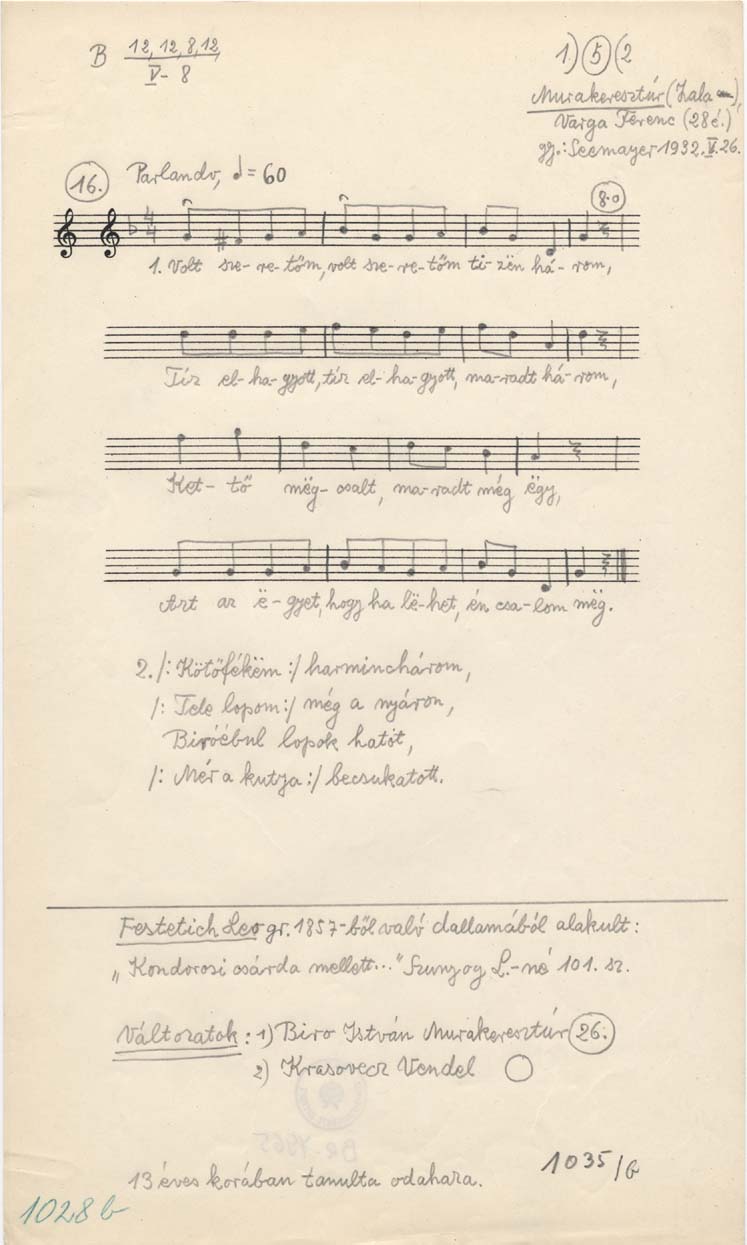 B 12, 12, 8, 12,
V - 8
1) 5 (2
Murakeresztúr (Zala),
Varga Ferenc (28 é.)
gy.: Seemayer 1932. V. 26.
16. Parlando, ♩= 60
8.0
4/4
1. Volt sze-re-tőm, volt sze-re-tőm ti-zën há-rom,
Tíz el-ha-gyott, tíz el-ha-gyott, ma-radt há-rom,
Ket-tő mëg-csalt, ma-radt még ëgy,
Azt az ë-gyet, hogy ha lë-het, én csa-lom mëg.
2. /: Kötőfékëm :/ harminchárom,
/: Tele lopom :/ még a nyáron,
Biróébul lopok hatot,
/: Mér a kutya :/ becsukatott.
Festetich Leo gr. 1857-ből való dallamából alakult:
„Kondorosi csárda mellett..." Szunyog L.-né 101. sz.
Változatok: 1) Biro István Murakeresztúr 26.
2) Krasovecz Vendel
13 éves korában tanulta odahaza.
1035/b
1028 b